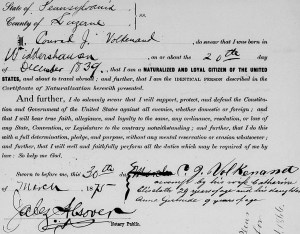 State of Pennsylvania
County of Luzerne
I, Conrad J. Volkenand, do swear that I was born
in Widdershausen on or about the 20th day
of December 1839, that I am a NATURALIZED AND LOYAL CITIZEN OF THE UNITED
STATES, and about to travel abroad; and further, that I am the IDENTICAL PERSON described in the
Certificate of Naturalization herewith presented.
And further, I do solemnly swear that I will support, protect, and defend the Constitu-
tion and Government of the United States against all enemies, whether domestic or foreign; and
that I will bear true faith, allegiance, and loyalty to the same, any ordinance, resolution, or law of
any State, Convention, or Legislature to the contrary notwithstanding; and further, that I do this
with a full determination, pledge, and purpose, without any mental reservation or evasion whatsoever;
and further, that I will well and faithfully perform all the duties which may be required of me by
law: So help me God.
Sworn to before me, this 30th day
of March 1875
C J Volkenand
accompd by his wife Catherine
Elizabeth 29 years of age and his daughter
Anna Gertrude 9 years of age
Notary Public.